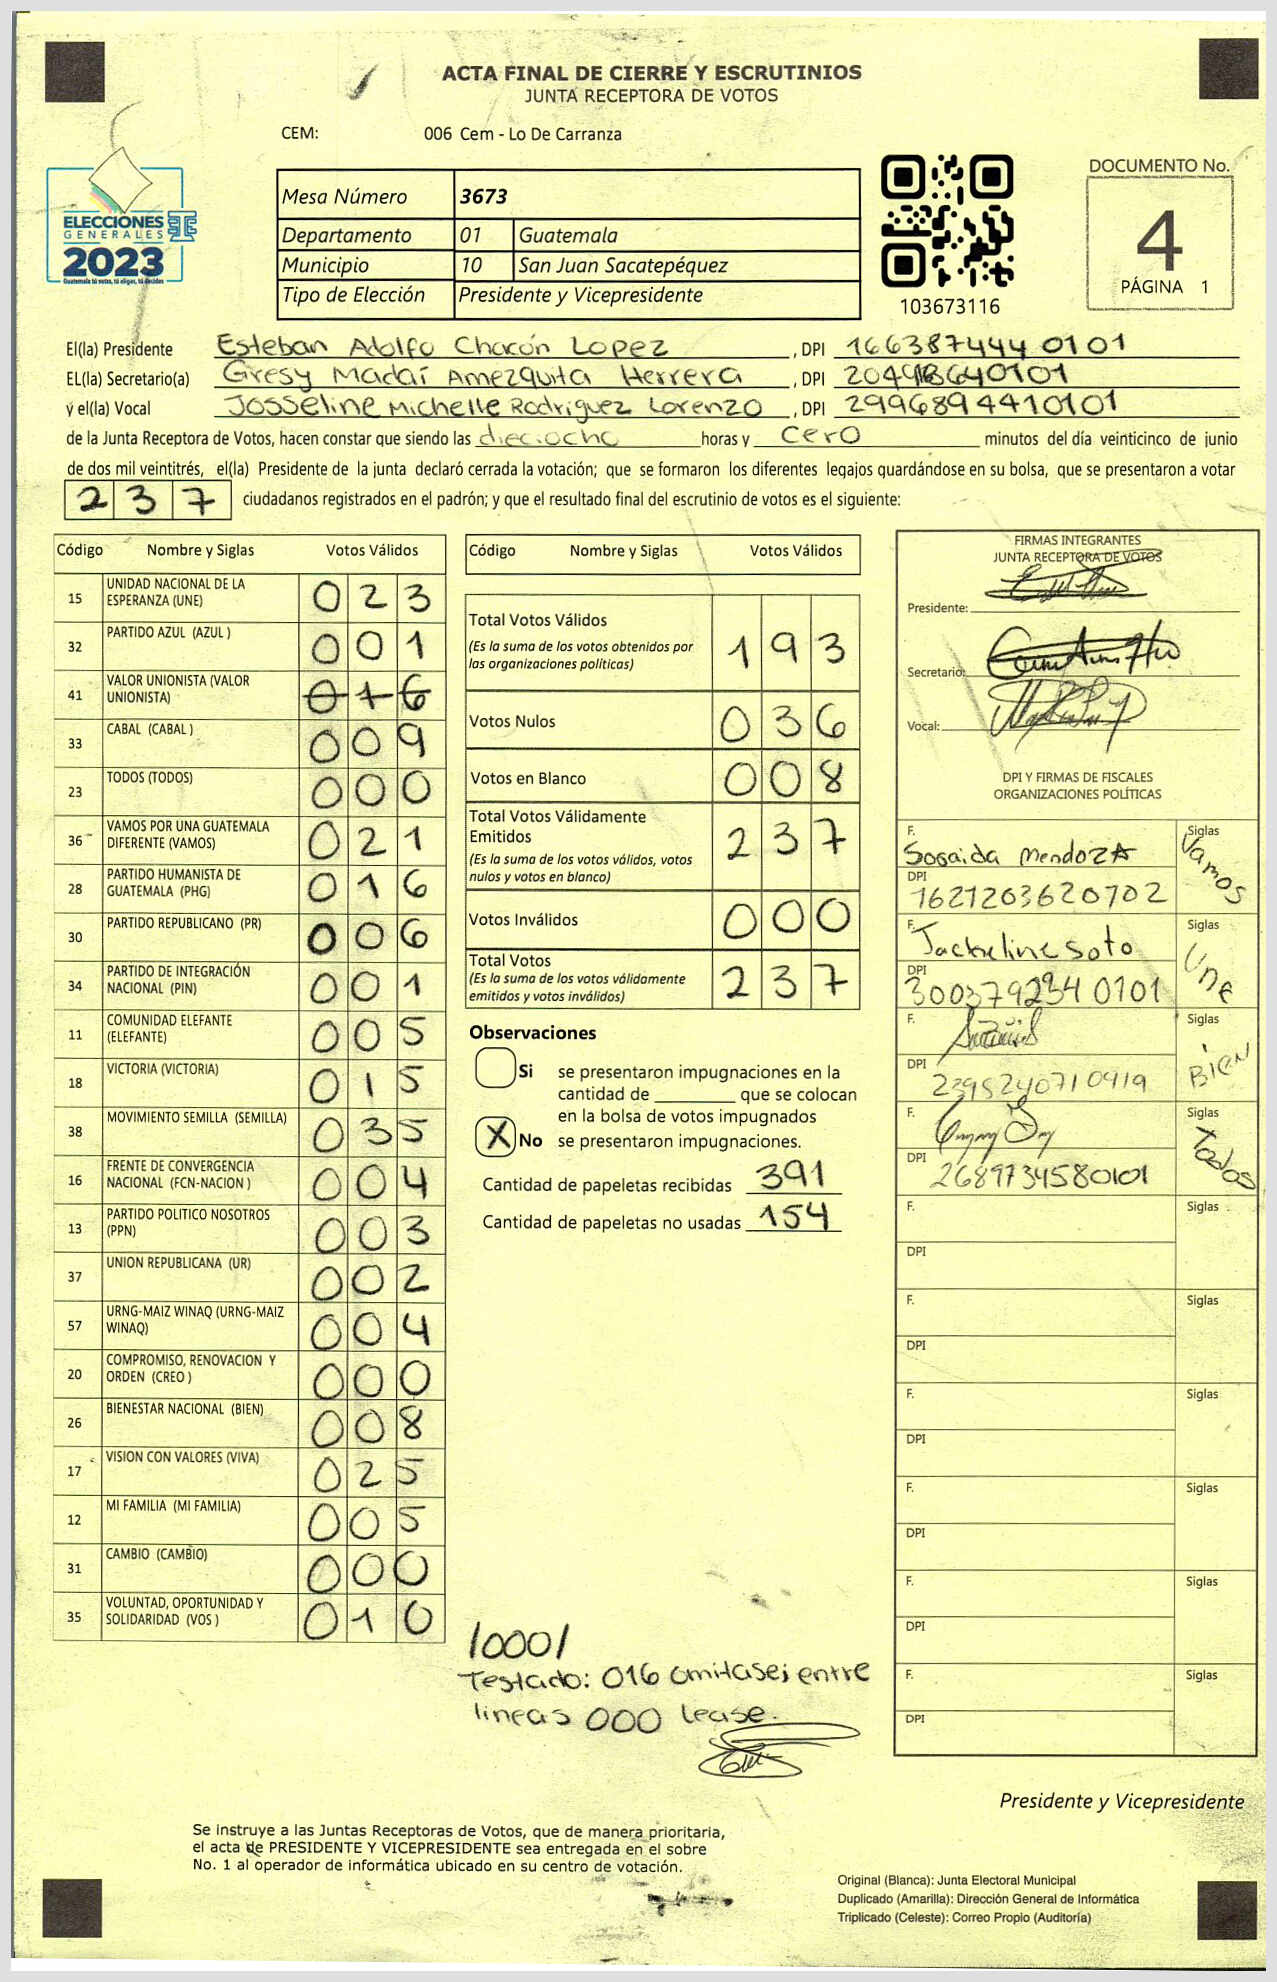 ACTA FINAL DE CIERRE Y ESCRUTINIOS
JUNTA RECEPTORA DE VOTOS
CEM: 006 Cem - Lo De Carranza
ELECCIONES
GENERALES
2023
Guatemala tú votas, tú eliges, tú decides
Mesa Número 3673
Departamento 01 Guatemala
Municipio 10 San Juan Sacatepéquez
Tipo de Elección Presidente y Vicepresidente
103673116
DOCUMENTO No.
4
PÁGINA 1
El(la) Presidente Esteban Adolfo Chacón Lopez, DPI 166387444 0101
EL(la) Secretario(a) Gresy Madaí Amezquita Herrera, DPI
y el(la) Vocal Josseline Michelle Rodriguez Lorenzo, DPI 2996894410101
de la Junta Receptora de Votos, hacen constar que siendo las dieciocho horas y cero minutos del día veinticinco de junio
de dos mil veintitrés, el(la) Presidente de la junta declaró cerrada la votación; que se formaron los diferentes legajos guardándose en su bolsa, que se presentaron a votar
237 ciudadanos registrados en el padrón; y que el resultado final del escrutinio de votos es el siguiente:
Código Nombre y Siglas Votos Válidos
15 UNIDAD NACIONAL DE LA ESPERANZA (UNE) 023
32 PARTIDO AZUL (AZUL ) 001
41 VALOR UNIONISTA (VALOR UNIONISTA) 016
33 CABAL (CABAL ) 009
23 TODOS (TODOS) 000
36 VAMOS POR UNA GUATEMALA DIFERENTE (VAMOS) 021
28 PARTIDO HUMANISTA DE GUATEMALA (PHG) 016
30 PARTIDO REPUBLICANO (PR) 006
34 PARTIDO DE INTEGRACIÓN NACIONAL (PIN) 001
11 COMUNIDAD ELEFANTE (ELEFANTE) 005
18 VICTORIA (VICTORIA) 015
38 MOVIMIENTO SEMILLA (SEMILLA) 035
16 FRENTE DE CONVERGENCIA NACIONAL (FCN-NACION ) 004
13 PARTIDO POLITICO NOSOTROS (PPN) 003
37 UNION REPUBLICANA (UR) 002
57 URNG-MAIZ WINAQ (URNG-MAIZ WINAQ) 004
20 COMPROMISO, RENOVACION Y ORDEN (CREO ) 000
26 BIENESTAR NACIONAL (BIEN) 008
17 VISION CON VALORES (VIVA) 025
12 MI FAMILIA (MI FAMILIA) 005
31 CAMBIO (CAMBIO) 000
35 VOLUNTAD, OPORTUNIDAD Y SOLIDARIDAD (VOS ) 010
Código Nombre y Siglas Votos Válidos
Total Votos Válidos 193
(Es la suma de los votos obtenidos por
las organizaciones políticas)
Votos Nulos 036
Votos en Blanco 008
Total Votos Válidamente
Emitidos 237
(Es la suma de los votos válidos, votos
nulos y votos en blanco)
Votos Inválidos 000
Total Votos 237
(Es la suma de los votos válidamente
emitidos y votos inválidos)
Observaciones
Si se presentaron impugnaciones en la
cantidad de ________ que se colocan
en la bolsa de votos impugnados
X No se presentaron impugnaciones.
Cantidad de papeletas recibidas 391
Cantidad de papeletas no usadas 154
10001
Testado: 016 omitase; entre
lineas 000 lease.
FIRMAS INTEGRANTES
JUNTA RECEPTORA DE VOTOS
Presidente:
Secretario:
Vocal:
DPI Y FIRMAS DE FISCALES
ORGANIZACIONES POLÍTICAS
F. Sogaida Mendoza Siglas Vamos
DPI 1621203620702
F. Jackeline Soto Siglas Une
DPI
F. Siglas Bien
DPI 2395240710919
F. Siglas Todos
DPI 2689734580101
F. Siglas
DPI
F. Siglas
DPI
F. Siglas
DPI
F. Siglas
DPI
F. Siglas
DPI
F. Siglas
DPI
Presidente y Vicepresidente
Se instruye a las Juntas Receptoras de Votos, que de manera prioritaria,
el acta de PRESIDENTE Y VICEPRESIDENTE sea entregada en el sobre
No. 1 al operador de informática ubicado en su centro de votación.
Original (Blanca): Junta Electoral Municipal
Duplicado (Amarilla): Dirección General de Informática
Triplicado (Celeste): Correo Propio (Auditoría)